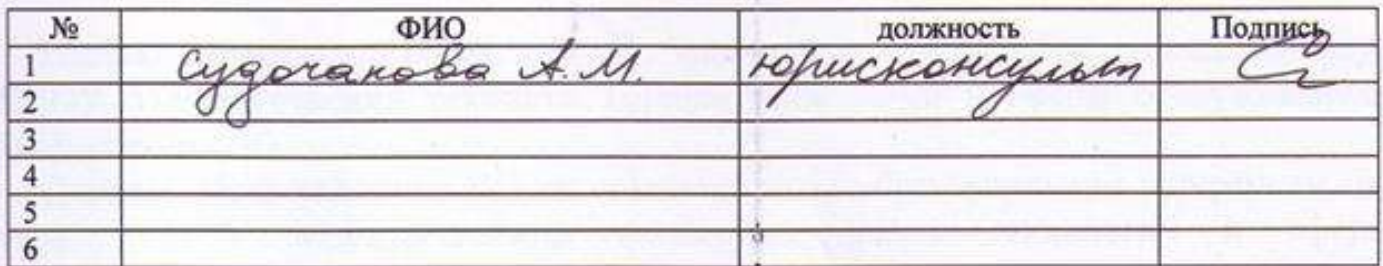 № ФИО должность Подпись
1 Судочакова А.М. юрисконсульт
2
3
4
5
6